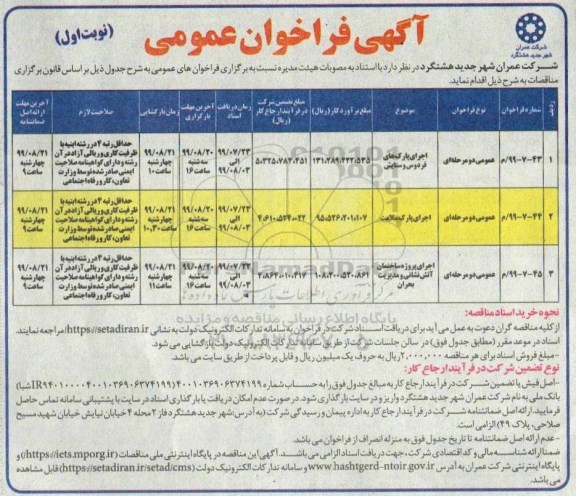 آگهی فراخوان عمومی
(نوبت اول)
شرکت عمران شهر جدید هشتگرد
شرکت عمران شهر جدید هشتگرد در نظر دارد با استناد به مصوبات هیئت مدیره نسبت به برگزاری فراخوان های عمومی به شرح جدول ذیل بر اساس قانون برگزاری
مناقصات به شرح ذیل اقدام نماید.
ردیف شماره فراخوان نوع فراخوان موضوع مبلغ برآورد کار (ریال) مبلغ تضمین شرکت در فرآیند ارجاع کار (ریال) زمان دریافت اسناد آخرین مهلت بارگزاری زمان بازگشایی صلاحیت لازم آخرین مهلت ارائه اصل ضمانتنامه
۱ ۹۹/۰۷-۴۳/م عمومی دو مرحله ای اجرای پارک های فردوس و ستایش ۹۹/۰۷/۲۳ الی ۹۹/۰۸/۰۳ ۹۹/۰۸/۲۰ سه شنبه ساعت ۱۶ ۹۹/۰۸/۲۱ چهارشنبه ساعت ۱۰ حداقل رتبه ۴ در رشته ابنیه با ظرفیت کاری و ریالی آزاد در آن رشته و دارای گواهینامه صلاحیت ایمنی صادر شده توسط وزارت تعاون، کار و رفاه اجتماعی ۹۹/۰۸/۲۱ چهارشنبه ساعت ۹
۲ عمومی دو مرحله ای اجرای پارک سلامت ۹۹/۰۷/۲۳ الی ۹۹/۰۸/۰۳ ۹۹/۰۸/۲۰ سه شنبه ساعت ۱۶ ۹۹/۰۸/۲۱ چهارشنبه ساعت ۱۰,۳۰ حداقل رتبه ۴ در رشته ابنیه با ظرفیت کاری و ریالی آزاد در آن رشته و دارای گواهینامه صلاحیت ایمنی صادر شده توسط وزارت تعاون، کار و رفاه اجتماعی ۹۹/۰۸/۲۱ چهارشنبه ساعت ۹
۳ عمومی دو مرحله ای اجرای پروژه ساختمان آتش نشانی و مدیریت بحران ۹۹/۰۷/۲۳ الی ۹۹/۰۸/۰۳ ۹۹/۰۸/۲۰ سه شنبه ساعت ۱۶ ۹۹/۰۸/۲۱ چهارشنبه ساعت ۱۱ حداقل رتبه ۴ در رشته ابنیه با ظرفیت کاری و ریالی آزاد در آن رشته و دارای گواهینامه صلاحیت ایمنی صادر شده توسط وزارت تعاون، کار و رفاه اجتماعی ۹۹/۰۸/۲۱ چهارشنبه ساعت ۹
نحوه خرید اسناد مناقصه:
از کلیه مناقصه گران دعوت به عمل می آید برای دریافت اسناد شرکت در فراخوان به سامانه تدارکات الکترونیک دولت به نشانی https://setadiran.ir مراجعه نمایند.
اسناد در موعد مقرر (مطابق جدول فوق) در سالن جلسات شرکت از طریق سامانه تدارکات الکترونیک دولت بازگشایی می شود.
-مبلغ فروش اسناد برای هر مناقصه ۲,۰۰۰,۰۰۰ ریال به حروف یک میلیون ریال و قابل پرداخت از طریق سایت می باشد.
نوع تضمین شرکت در فرآیند ارجاع کار:
-اصل فیش یا تضمین شرکت در فرآیند ارجاع کار به مبالغ جدول فوق را به حساب شماره
بانک ملی به نام شرکت عمران شهر جدید هشتگرد واریز و در سایت بارگذاری شود. در صورت عدم امکان دریافت یا بارگذاری اسناد در سایت با پشتیبانی سامانه تماس حاصل
فرمایید. ارائه اصل ضمانتنامه شرکت در فرآیند ارجاع کار به اداره پیمان و رسیدگی شرکت (به آدرس: شهر جدید هشتگرد فاز ۲ محله ۴ خیابان نیایش خیابان شهید مسیح
صلاحی، پلاک ۴۹) الزامی است.
-عدم ارائه اصل ضمانتنامه تا تاریخ جدول فوق به منزله انصراف از فراخوان می باشد.
ضمنا ارائه شناسه ملی و کد اقتصادی شرکت، جهت دریافت اسناد الزامی می باشد. آگهی این مناقصه در پایگاه اینترنتی ملی مناقصات (https://iets.mporg.ir) و
پایگاه اینترنتی شرکت عمران به آدرس www.hashtgerd-ntoir.gov.ir و سامانه تدارکات الکترونیک دولت (https://setadiran.ir/setad/cms) قابل مشاهده
می باشد.